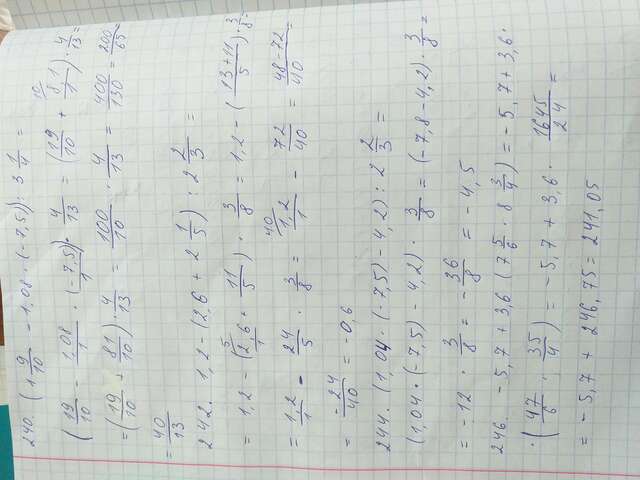 240. (1 9/10 - 1,08 · (-7,5)) : 3 1/4 =
(19/10 - 1,08/1 · (-7,5)/1) · 4/13 = (19/10 + 81/1) · 4/13 =
= (19/10 + 81/10) · 4/13 = 100/10 · 4/13 = 400/130 = 200/65
= 40/13
242. 1,2 - (2,6 + 2 1/5) : 2 2/3 =
= 1,2 - (2,6/1 + 11/5) · 3/8 = 1,2 - (13+11/5) · 3/8 =
= 1,2/1 - 24/5 · 3/8 = 1,2/1 - 72/40 = 48-72/40
= -24/40 = -0,6
244. (1,04 · (-7,5) - 4,2) : 2 2/3 =
(1,04 · (-7,5) - 4,2) · 3/8 = (-7,8 - 4,2) · 3/8 =
= -12 · 3/8 = -36/8 = -4,5
246. -5,7 + 3,6 (7 5/6 · 8 3/4) = -5,7 + 3,6 ·
· (47/6 · 35/4) = -5,7 + 3,6 · 1645/24 =
= -5,7 + 246,75 = 241,05